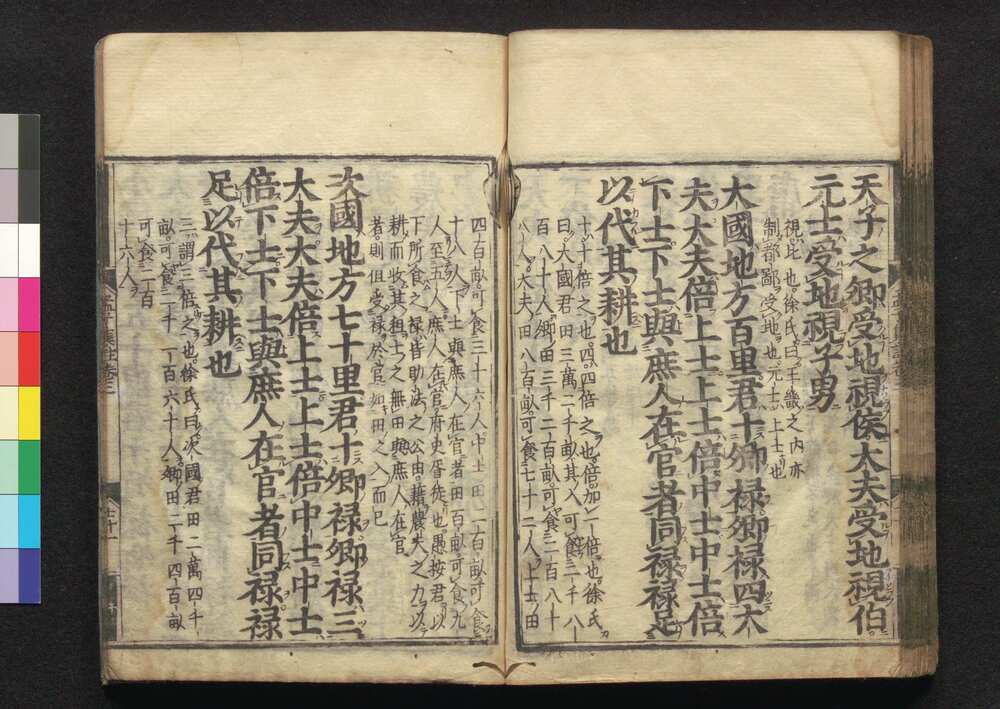 天子之卿受地視侯大夫受地視伯
元士受地視子男
視比也徐氏曰王畿之內亦
制都鄙受地也元士上士也
大國地方百里君十卿祿卿祿四大
夫大夫倍上士上士倍中士中士倍
下士下士與庶人在官者同祿祿足
以代其耕也
十十倍之也四四倍之也倍加一倍也徐氏
曰大國君田三萬二千畝其入可食二千八
百八十人卿田三千二百畝可食二百八十
八人大夫田八百畝可食七十二人上士田
四百畝可食三十六人中士田二百畝可食
十八人下士與庶人在官者田百畝可食九
人至五人庶人在官府史胥徒也愚按君以
下所食之祿皆助法之公田藉農夫之力以
耕而收其租士之無田與庶人在官
者則但受祿於官如田之入而已
次國地方七十里君十卿祿卿祿三
大夫大夫倍上士上士倍中士中士
倍下士下士與庶人在官者同祿祿
足以代其耕也
三謂三倍之也徐氏曰次國君田二萬四千
畝可食二千一百六十人卿田二千四百畝
可食二百
十六人
孟子集註卷三
七十一